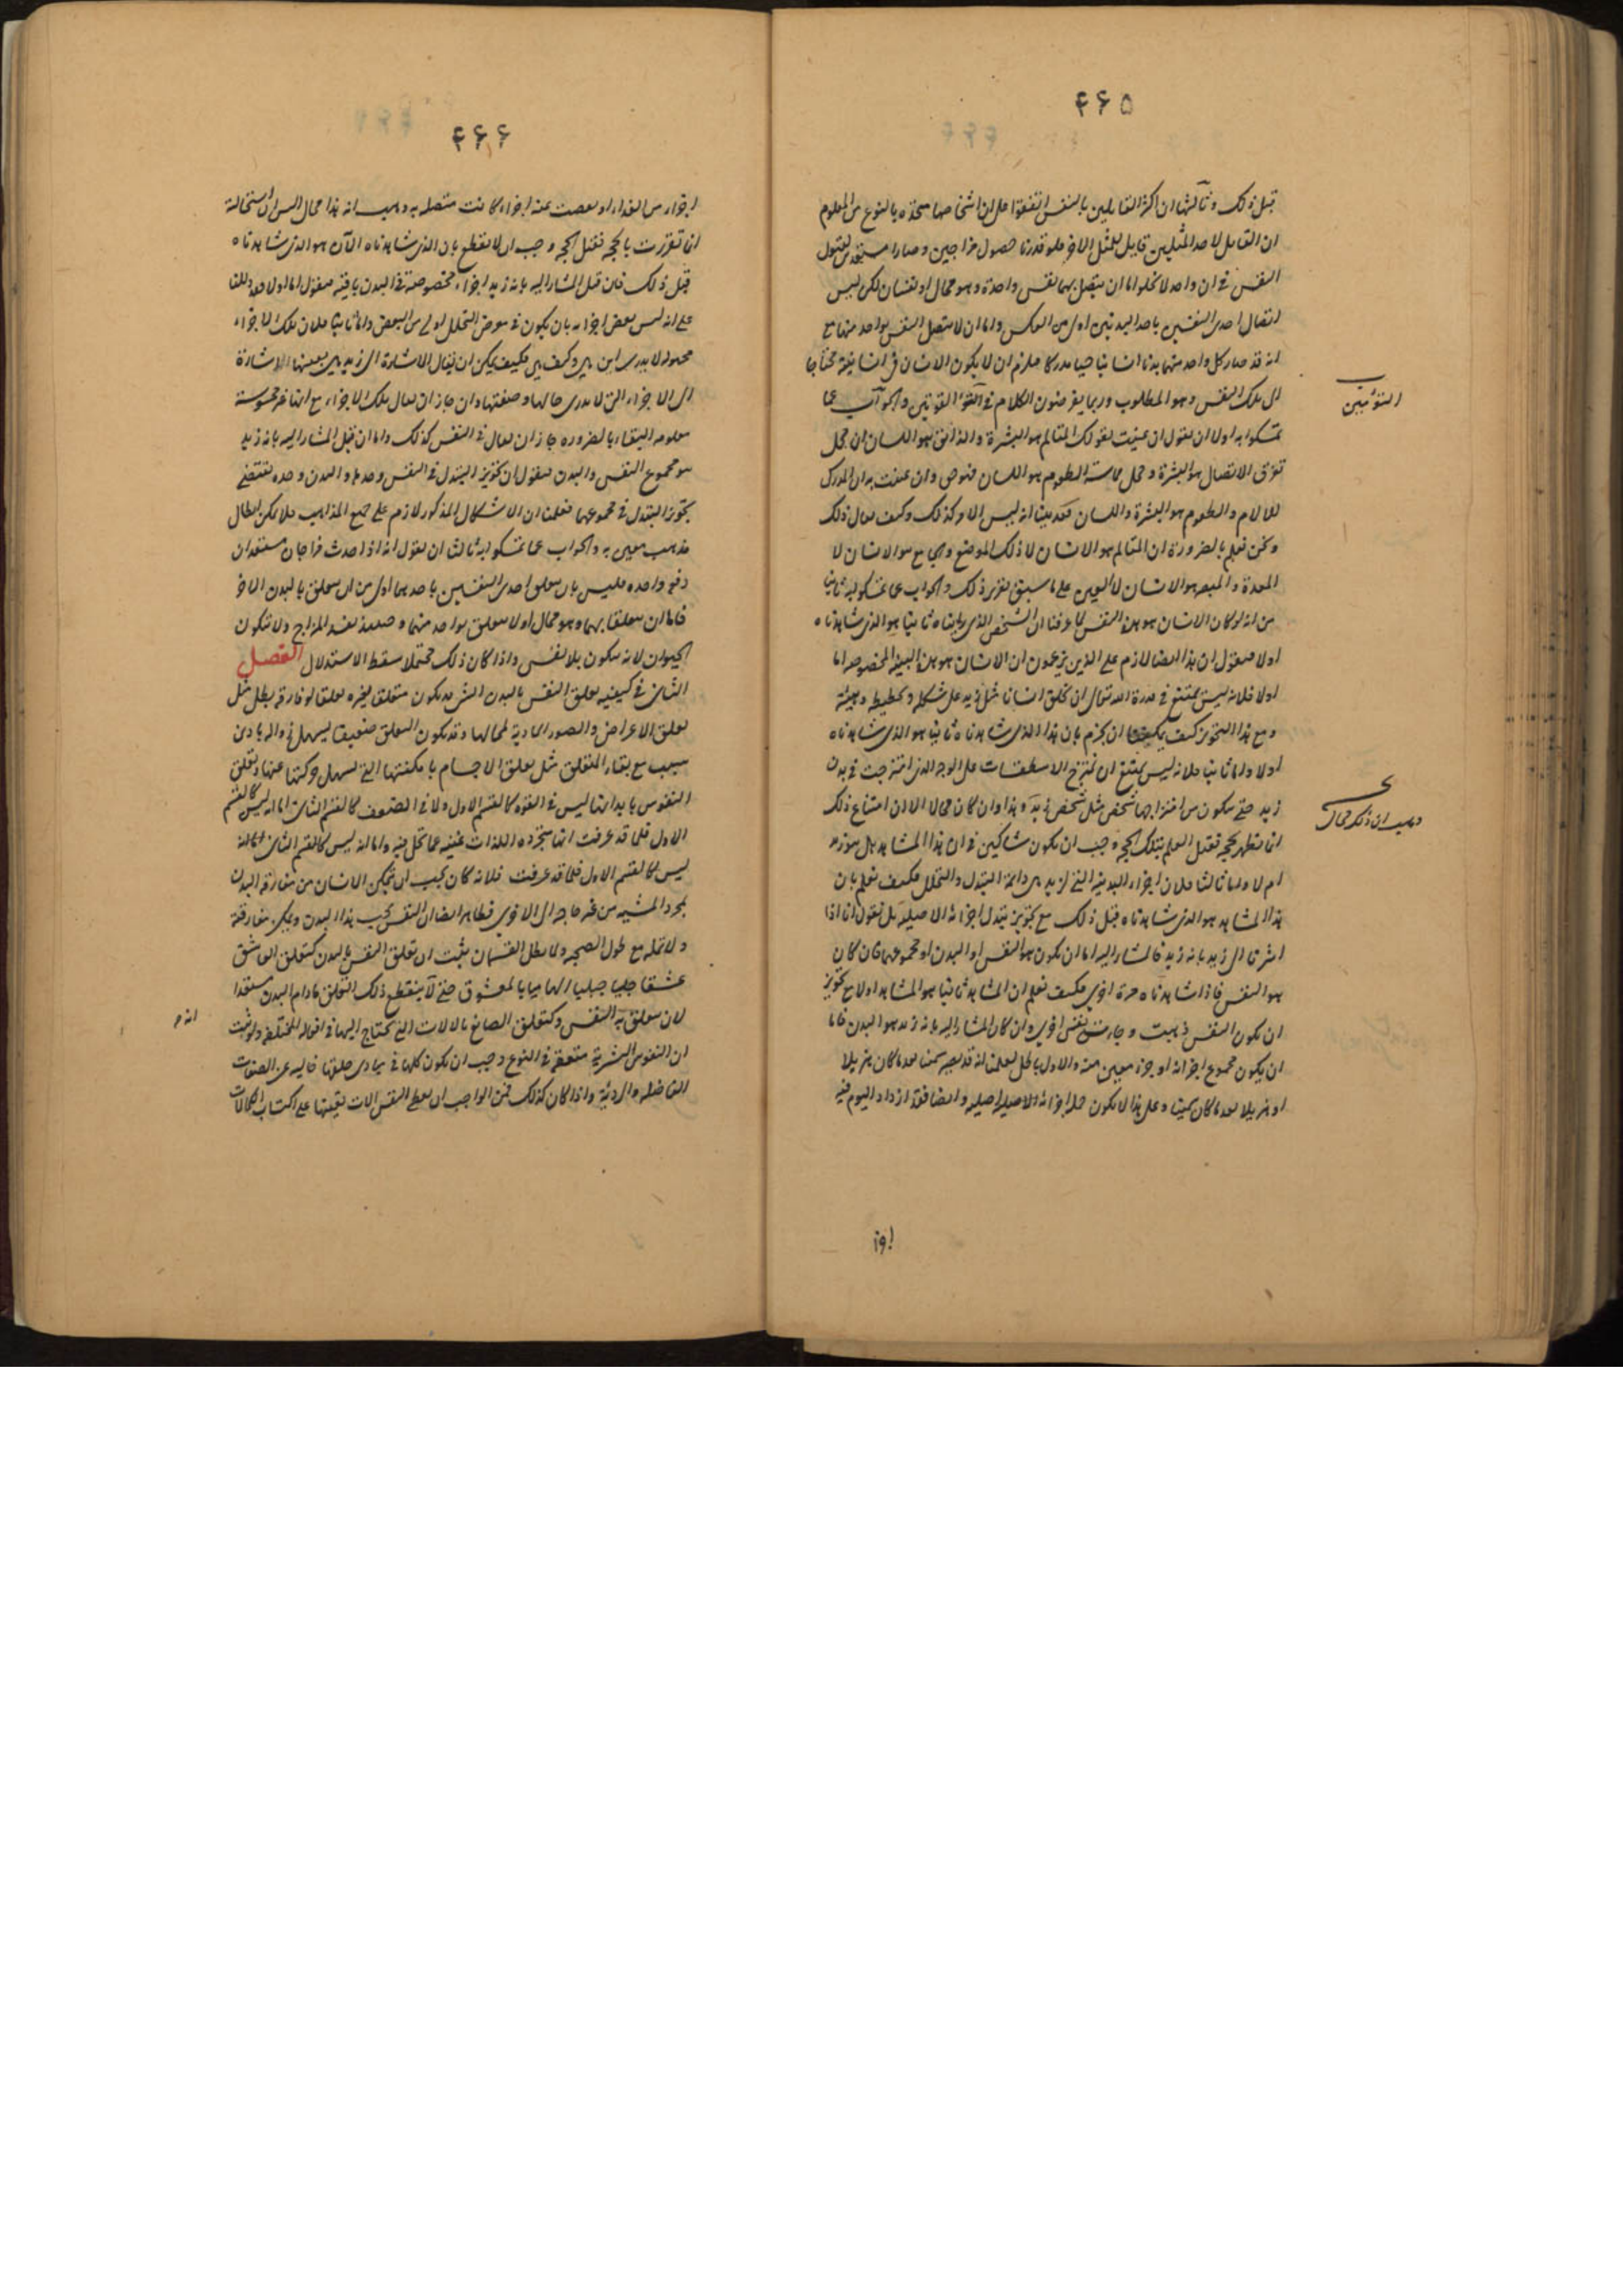 ۴۶۵
قبل ذلك وثالثها ان اكثر القايلين بالنفس اتفقوا على ان اشخاصها متحدة بالنوع من المعلوم
ان القابل لاحد المثلين قابل للمثل الاخر فلو قدرنا حصول مزاجين وصارا مستعدين لقبول
النفس فى ان واحد لا يخلو اما ان يتصل بهما نفس واحدة وهو محال او نفسان لكن ليس
اتصال احدى النفسين باحد البدنين اولى من العكس واما ان لا يتصل النفس بواحد منهما مع
انه قد صار كل واحد منهما بدنا انسانيا حيا مدركا فلزم ان لا يكون الانسان فى انسانيته محتاجا
الى تلك النفس وهو المطلوب وربما يفرضون الكلام فى والجواب عما
التوأمين
تمسكوا به اولا ان نقول ان عنيت بقولك المتالم هو البشرة والذائق هو اللسان ان محل
تفرق الاتصال هو البشرة ومحل مماسة المطعوم هو اللسان فهو وان عنيت به ان المدرك
للالام والطعوم هو البشرة واللسان فقد بينا انه ليس الامر كذلك وكيف يقال ذلك
ونحن نعلم بالضرورة ان المتالم هو الانسان لا ذلك الموضع والجايع هو الانسان لا
المعدة والمبصر هو الانسان لا العين على ما سبق تقرير ذلك والجواب عما تمسكوا به ثانيا
من انه لو كان الانسان هو هذه النفس لما عرفنا ان الشخص الذى رايناه ثانيا هو الذى شاهدناه
اولا فنقول ان هذا ايضا لازم على الذين يزعمون ان الانسان هو هذه البنية المخصوصة اما
اولا فلانه ليس يمتنع فى قدرة الله تعالى ان يخلق انسانا مثل زيد على شكله وتخطيطه وهيئته
ومع هذا التجويز كيف يمكننا ان نجزم بان هذا الذى شاهدناه ثانيا هو الذى شاهدناه
اولا واما ثانيا فلانه ليس يمتنع ان تمتزج الاسطقسات على الوجه الذى امتزجت فى بدن
زيد حتى يتكون من امتزاجها شخص مثل شخص زيد وهذا وان كان محالا الا ان امتناع ذلك
وهب ان ذلك محال
انما تظهر بحجة فقبل العلم بتلك الحجة وجب ان نكون شاكين فى ان هذا المشاهد هل هو زيد
ام لا واما ثالثا فلان اجزاء البدنية التى لزيد هى دائمة التبدل والتحلل فكيف نعلم بان
هذا المشاهد هو الذى شاهدناه قبل ذلك مع تجويز تبدل اجزائه الاصلية بل نقول انا اذا
اشرنا الى زيد بانه زيد فالمشار اليه اما ان يكون هو النفس او البدن او مجموعهما فان كان
هو النفس فاذا شاهدناه مرة اخرى فكيف نعلم ان المشاهد ثانيا هو المشاهد اولا مع تجويز
ان يكون النفس ذهبت وجاءت نفس اخرى وان كان المشار اليه بانه زيد هو البدن فاما
ان يكون مجموع اجزائه او جزء معين منه والاول باطل لعلمنا انه قد يصير سمينا بعد ما كان هزيلا
او هزيلا بعد ما كان سمينا وعلى هذا لا يكون جملة اجزائه الاصلية اصلية وايضا فقد ازداد اليوم فيه
اجزا
۴۶۶
اجزاء من الغذاء او نقصت عنه اجزاء كانت متصلة به وهب انه هذا محال اليس ان استحالة
انما تقررت بالحجة فقبل الحجة وجب ان لا نقطع بان الذى شاهدناه الان هو الذى شاهدناه
قبل ذلك فان قيل المشار اليه بانه زيد اجزاء مخصوصة فى البدن باقية فنقول اما اولا فقد دللنا
على انه ليس بعض اجزائه بان يكون فى معرض التحلل اولى من البعض واما ثانيا فلان تلك الاجزاء
مجهولة لا يدرى اين هى وكيف هى فكيف يمكن ان يقال الاشارة الى زيد هى بعينها الاشارة
الى الاجزاء التى لا يدرى حالها وصفتها وان جاز ان يقال تلك الاجزاء مع انها غير محسوسة
معلومة البقاء بالضرورة جاز ان يقال فى النفس كذلك واما ان قيل المشار اليه بانه زيد
هو مجموع النفس والبدن فنقول ان تجويز التبدل فى النفس وحدها والبدن وحده يقتضى
تجويز التبدل فى مجموعهما فعلمنا ان الاشكال المذكور لازم على جميع المذاهب فلا يمكن ابطال
مذهب معين به والجواب عما تمسكوا به ثالثا ان نقول انه اذا حدث مزاجان مستعدان
دفعة واحدة فليس بان يتعلق احدى النفسين باحدهما اولى من ان يتعلق بالبدن الاخر
فاما ان يتعلقا بهما وهو محال او لا يتعلق بواحد منهما وحينئذ يفسد المزاج ولا يتكون
الحيوان لانه يتكون بلا نفس واذا كان ذلك محتملا سقط الاستدلال الفصل
الثانى فى كيفية تعلق النفس بالبدن الشئ قد يكون متعلقا بغيره تعلقا لو فارقه بطل مثل
تعلق الاعراض والصور المادية لمحالها وقد يكون التعلق ضعيفا يسهل زواله بادنى
سبب مع بقاء المتعلق مثل تعلق الاجسام بامكنتها التى تسهل حركتها عنها وتعلق
النفوس بابدانها ليس فى القوة كالقسم الاول ولا فى الضعف كالقسم الثانى اما انه ليس كالقسم
الاول فلما قد عرفت انها مجردة الذات غنية عما تحل فيه واما انه ليس كالقسم الثانى
ليس كالقسم الاول فلما قد عرفت فلانه كان يجب ان يتمكن الانسان من مفارقة البدن
بمجرد المشية من غير حاجة الى الة اخرى فظاهر ايضا ان النفس تحب هذا البدن وتكره مفارقته
ولا تمله مع طول الصحبة ولما بطل القسمان ثبت ان تعلق النفس بالبدن كتعلق العاشق
عشقا جليا جبليا الهاميا بالمعشوق حتى لا ينقطع ذلك التعلق مادام البدن مستعدا
لان يتعلق به النفس وكتعلق الصانع بالالات التى يحتاج اليها فى افعاله المختلفة ولو ثبت
ان النفوس البشرية متفقة فى النوع وجب ان يكون كلها فى مبادى خلقتها خالية عن الصفات
الفاضلة والردية واذا كان كذلك فمن الواجب ان يعطى النفس الات تعينها على اكتساب الكمالات